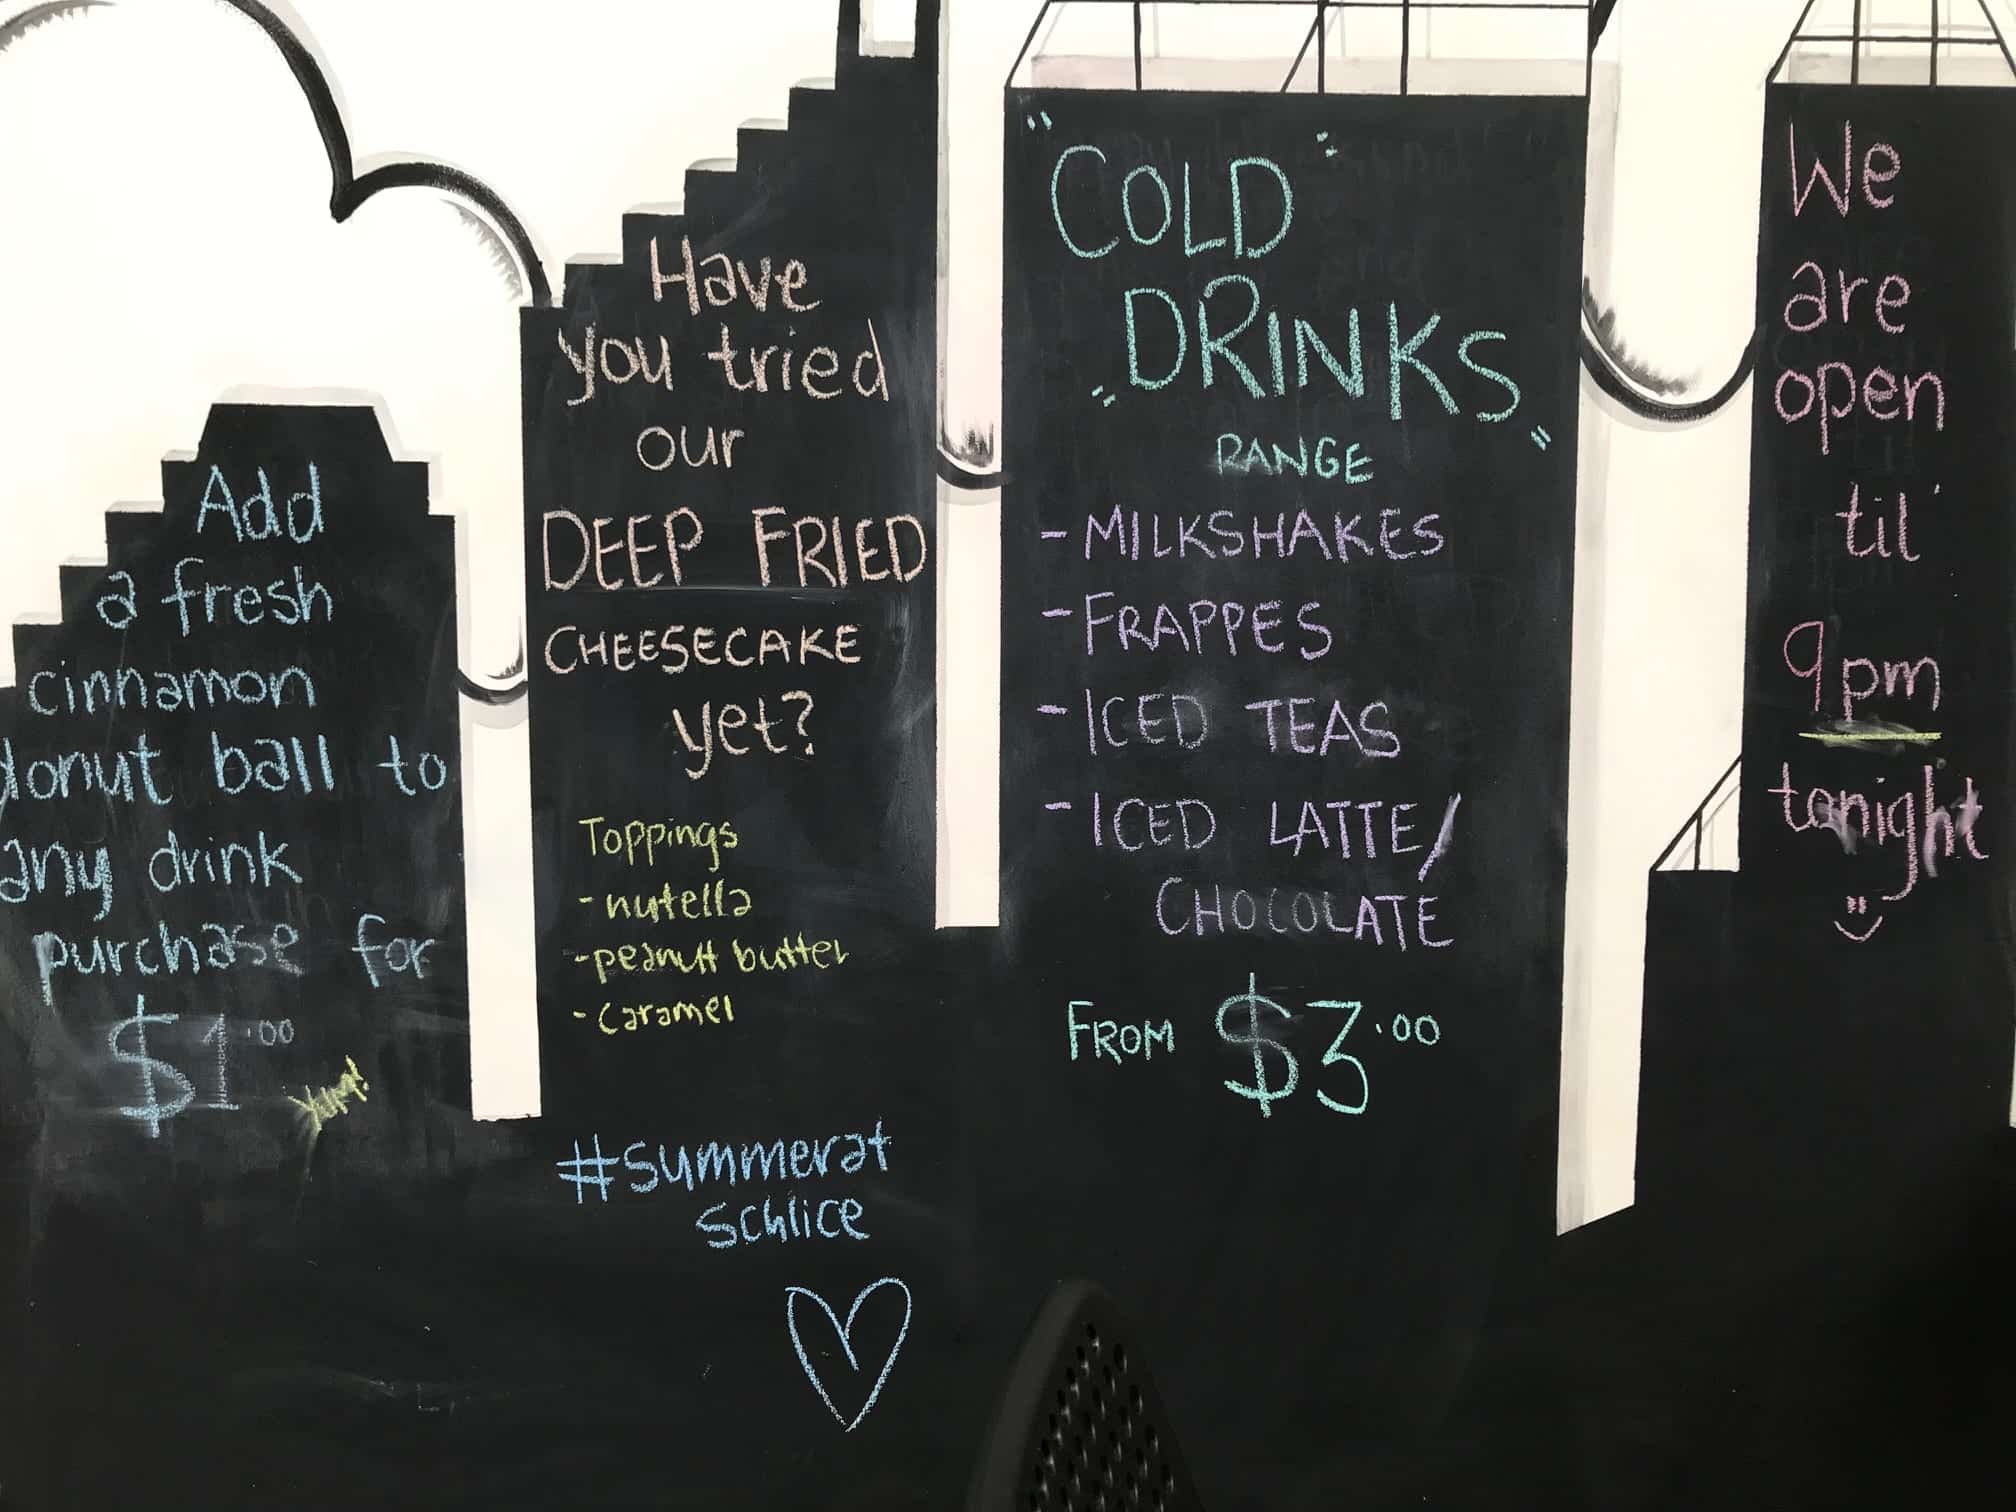 Add
a fresh
cinnamon
donut ball to
any drink
purchase for
$1.00
Yum!
Have
you tried
our
DEEP FRIED
CHEESECAKE
yet?
Toppings
- nutella
- peanutt butter
- caramel
#summerat
schlice
"COLD"
"DRINKS"
RANGE
- MILKSHAKES
- FRAPPES
- ICED TEAS
- ICED LATTE/
CHOCOLATE
FROM $3.00
We
are
open
til'
9pm
tonight